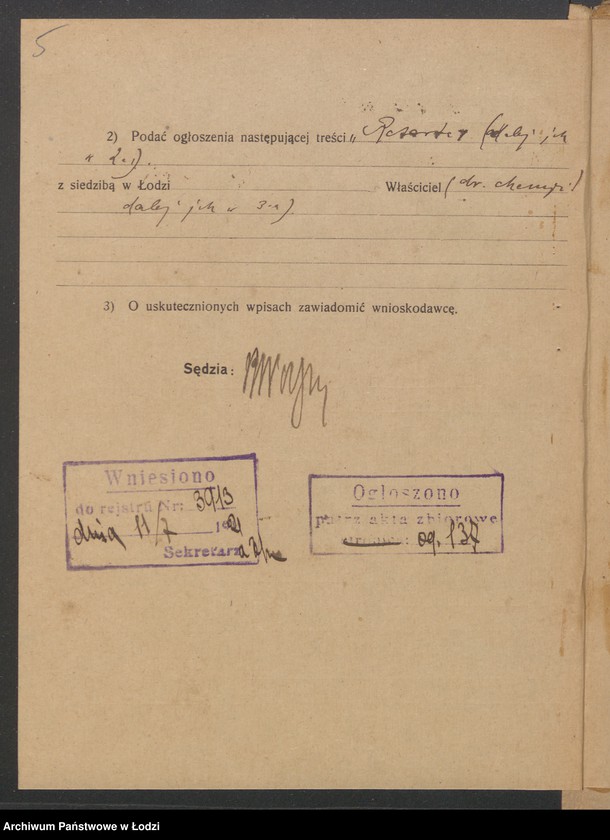 5
2) Podać ogłoszenia następującej treści „ (dalej jak
w 2-ej).
z siedzibą w Łodzi Właściciel (dr.
dalej jak w 3-ej).
3) O uskutecznionych wpisach zawiadomić wnioskodawcę.
Sędzia:
Wniesiono
do rejstru Nr: 3913
dnia 11/7 192
Sekretarz
Ogłoszono
patrz akta zbiorowe
stronica: og. 137
Archiwum Państwowe w Łodzi